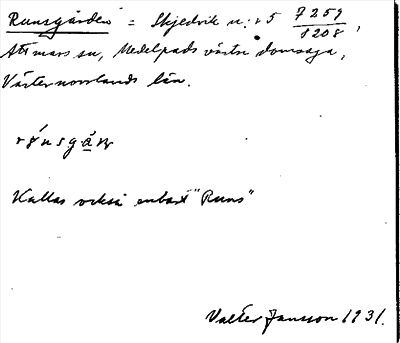 Runsgården = Skjedvik n:r 5 7259/8208,
Attmars sn, Medelpads västra domsaga,
Västernorrlands län.
Kallas också enbart "Runs"
Valter Jansson 1931.